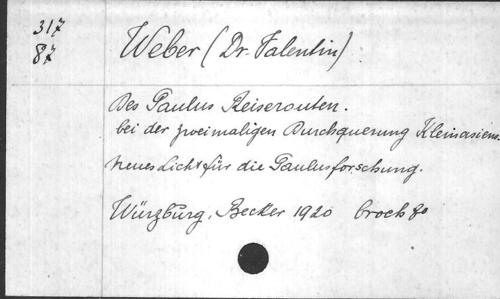 317
87
Weber (Dr. Valentin)
Des Paulus Reiserouten.
bei der zweimaligen Durchquerung Kleinasiens.
Neues Licht für die Paulusforschung.
Würzburg, Becker 1920 broch 8o